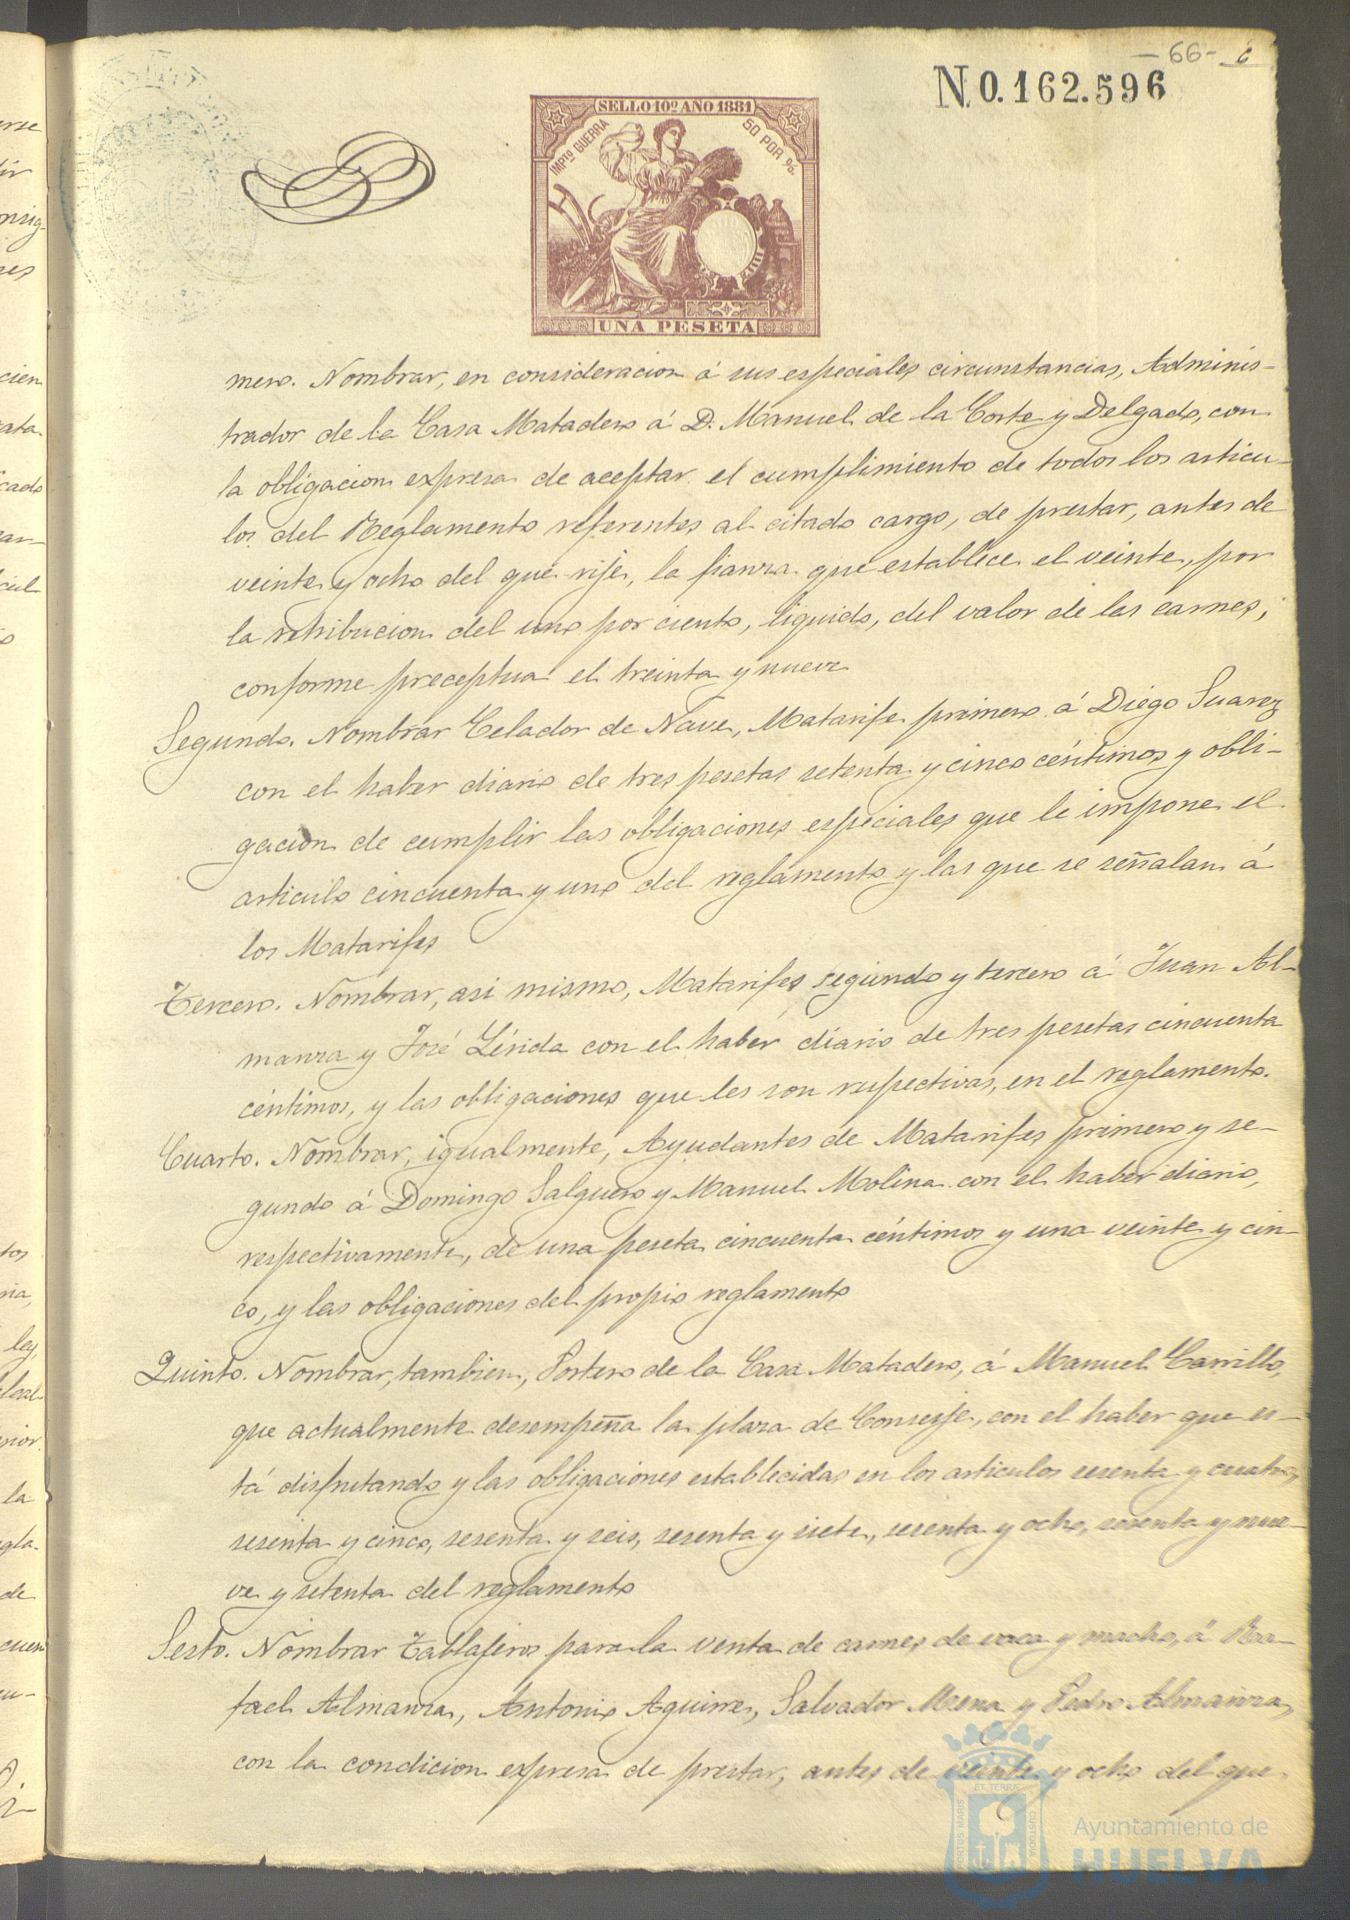 -66- 6
N.0.162.596
SELLO 10º AÑO 1881
IMPTO GUERRA
50 POR %.
UNA PESETA
mero. Nombrar, en consideracion á sus especiales circunstancias, Adminis-
trador de la Casa Matadero á D. Manuel de la Corte y Delgado, con
la obligacion expresa de aceptar el cumplimiento de todos los articu-
los del Reglamento referentes al citado cargo, de prestar, antes de
veinte y ocho del que rije, la fianza que establece el veinte, por
la retribucion del uno por ciento, liquido, del valor de las carnes,
conforme preceptua el treinta y nueve
Segundo. Nombrar Celador de Nave, Matarife primero á Diego Suarez
con el haber diario de tres pesetas setenta y cinco céntimos y obli-
gacion de cumplir las obligaciones especiales que le impone el
articulo cincuenta y uno del reglamento y las que se señalan á
los Matarifes
Tercero. Nombrar, asi mismo, Matarifes segundo y tercero á Juan Al-
manza y José Lérida con el haber diario de tres pesetas cincuenta
céntimos, y las obligaciones que les son respectivas, en el reglamento.
Cuarto. Nombrar, igualmente, Ayudantes de Matarifes primero y se-
gundo á Domingo Salguero y Manuel Molina con el haber diario,
respectivamente, de una peseta cincuenta céntimos y una veinte y cin-
co, y las obligaciones del propio reglamento
Quinto. Nombrar, tambien, Portero de la Casa Matadero, á Manuel Carrillo,
que actualmente desempeña la plaza de Conserje, con el haber que es-
tá disfrutando y las obligaciones establecidas en los articulos sesenta y cuatro,
sesenta y cinco, sesenta y seis, sesenta y siete, sesenta y ocho, sesenta y nue-
ve y setenta del reglamento
Sesto. Nombrar Tablajeros para la venta de carnes de vaca y macho, á Ra-
fael Almanza, Antonio Aguirre, Salvador Mena y Pedro Almanza,
con la condicion expresa de prestar, antes de veinte y ocho del que
PORTUS MARIS
ET TERRÆ
CUSTODIA
Ayuntamiento de
HUELVA